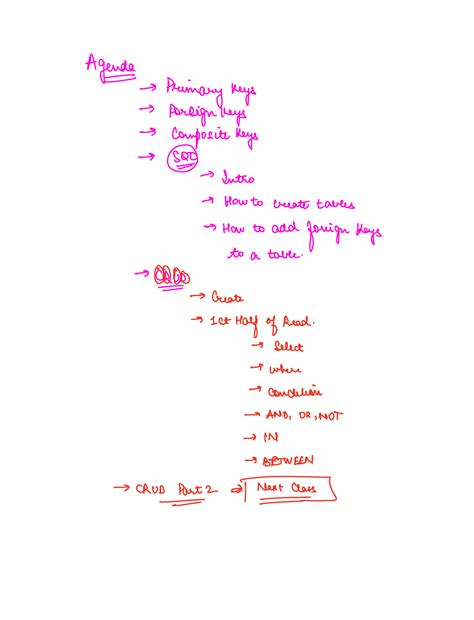 Agenda
→ Primary Keys
→ Foreign Keys
→ Composite Keys
→ SQL
→ Intro
→ How to create tables
→ How to add foreign keys
to a table.
→ CRUD
→ Create
→ 1st Half of Read.
→ Select
→ where
→ condition
→ AND, OR, NOT
→ IN
→ BETWEEN
→ CRUD Part 2 → Next Class